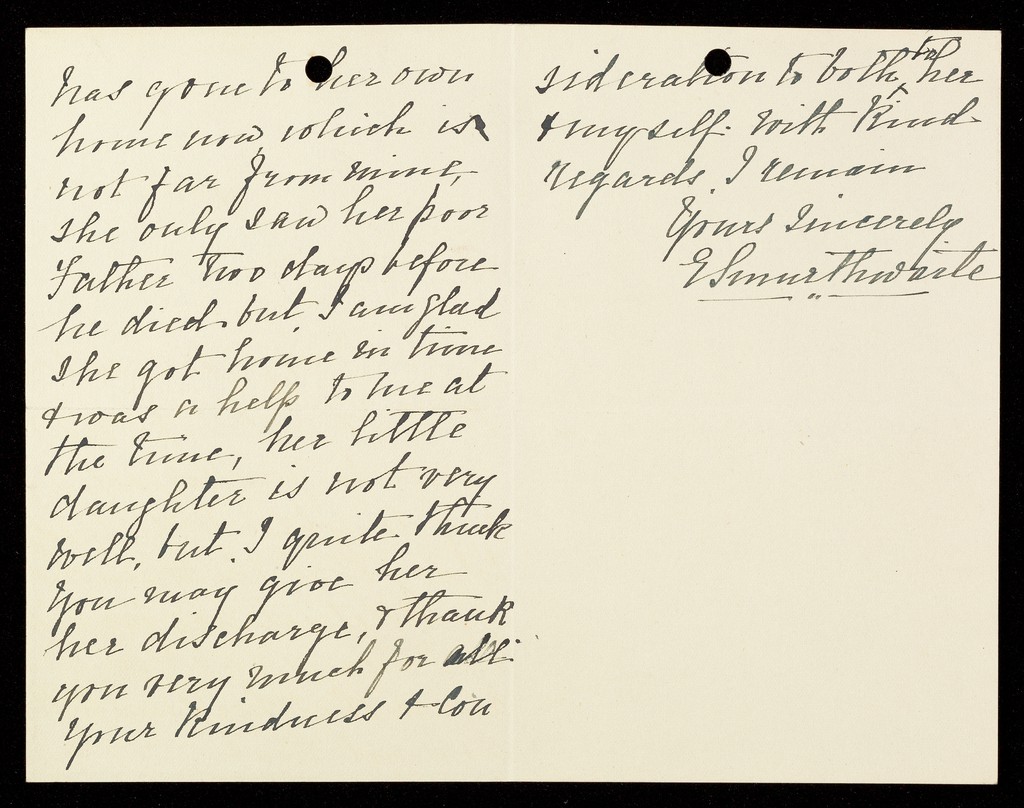 has gone to her own
home now, which is
not far from mine,
she only saw her poor
Father two days before
he died but I am glad
she got home in time
& was a help to me at
the time, her little
daughter is not very
well, but I quite think
you may give her
her discharge, & thank
you very much for all
your kindness & Con
sideration to both to her
& myself. With Kind
regards, I remain
Yours Sincerely
E Smurthwaite